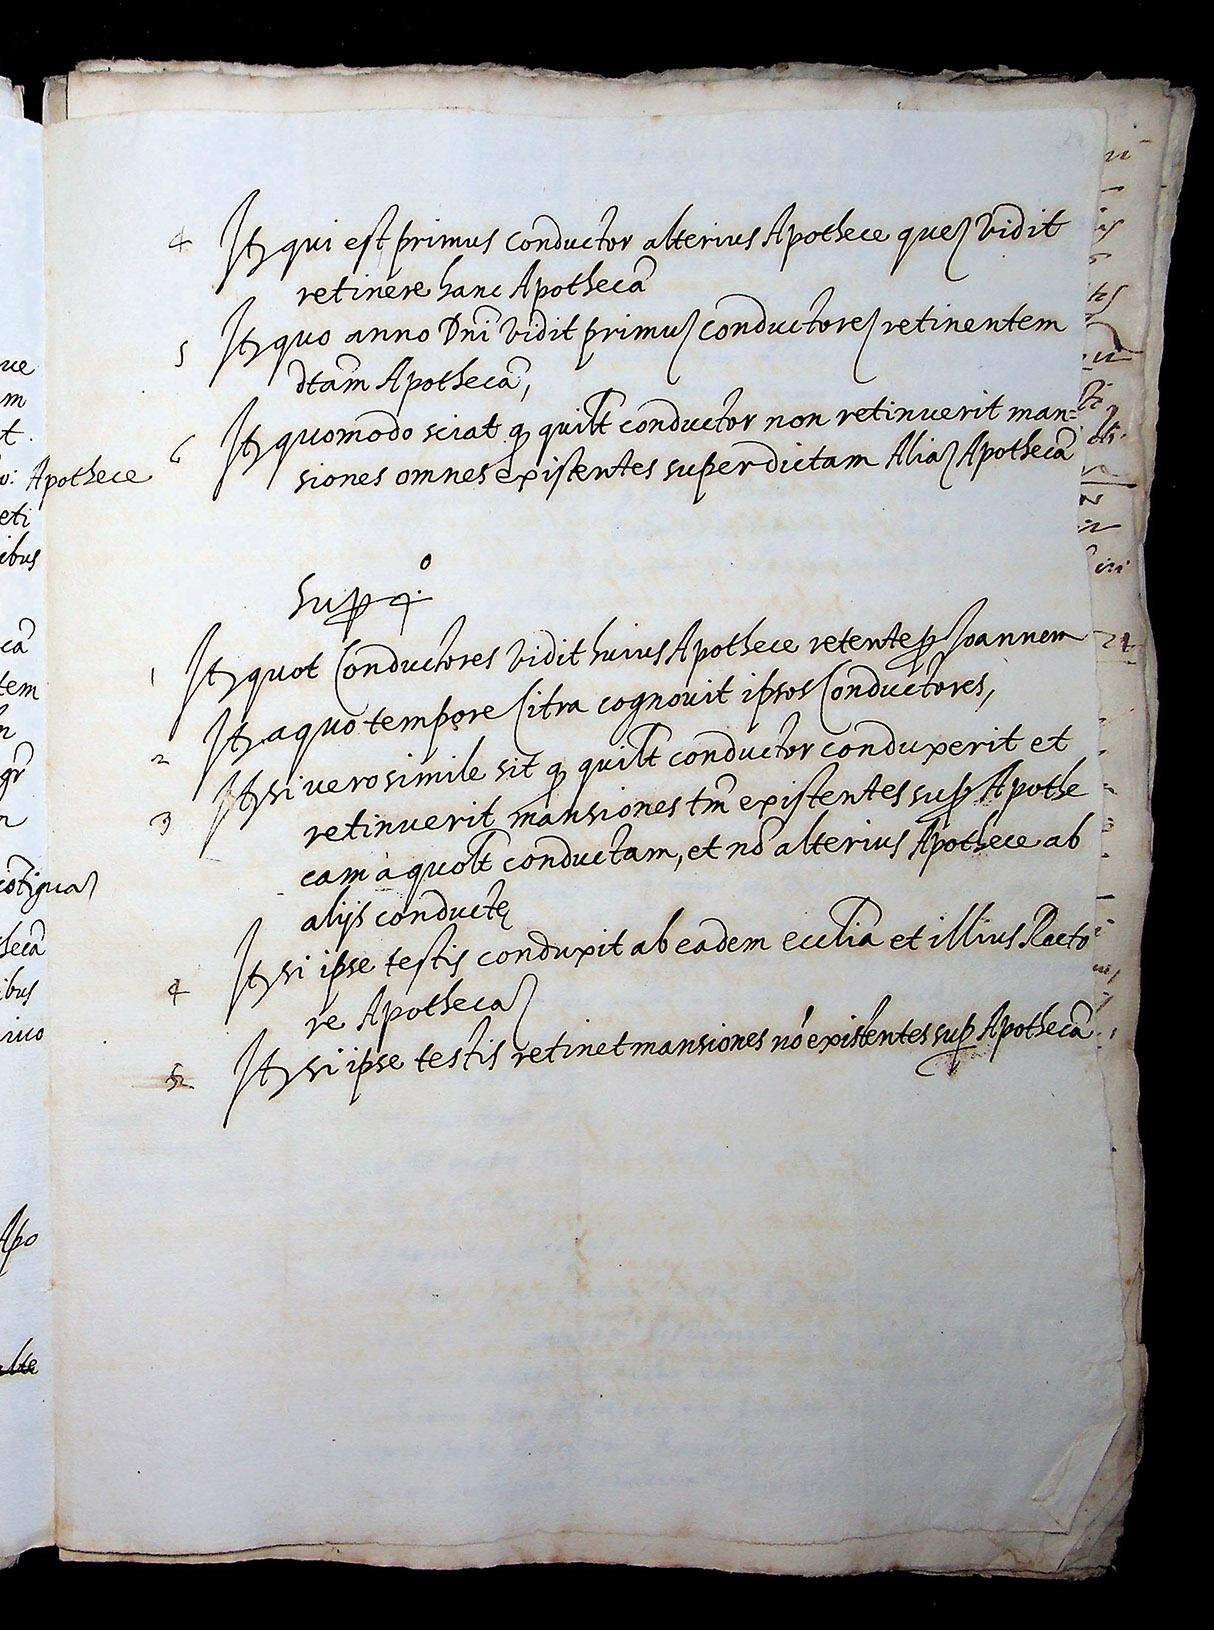 4 Itẽ qui est primus conductor alterius Apothece quẽ vidit
retinere hanc Apothecã
5 Itẽ quo anno Dñi vidit primũ conductorẽ retinentem
dtam Apothecã,
6 Itẽ quomodo sciat q quilt conductor non retinuerit man=
siones omnes existentes super dictam Aliã Apothecã
Supr 4.º
1 Itẽ quot Conductores vidit huius Apothece retente p Joannem
2 Itẽ a quo tempore Citra cognouit ipsos Conductores,
3 Itẽ si verosimile sit q quilt conductor conduxerit et
retinuerit mansiones tm̃ existentes sup Apothe
cam à quolt conductam, et nõ alterius Apothece ab
alijs conductę
4 Itẽ si ipse testis conduxit ab eadem ecclia et illius Recto
re Apothecã
5 Itẽ si ipse testis retinet mansiones nõ existentes sup Apothecã
ue
m
t.
Apothece
eti
ibus
cã
tem
gr
cõtiguã
hecã
ibus
Apo